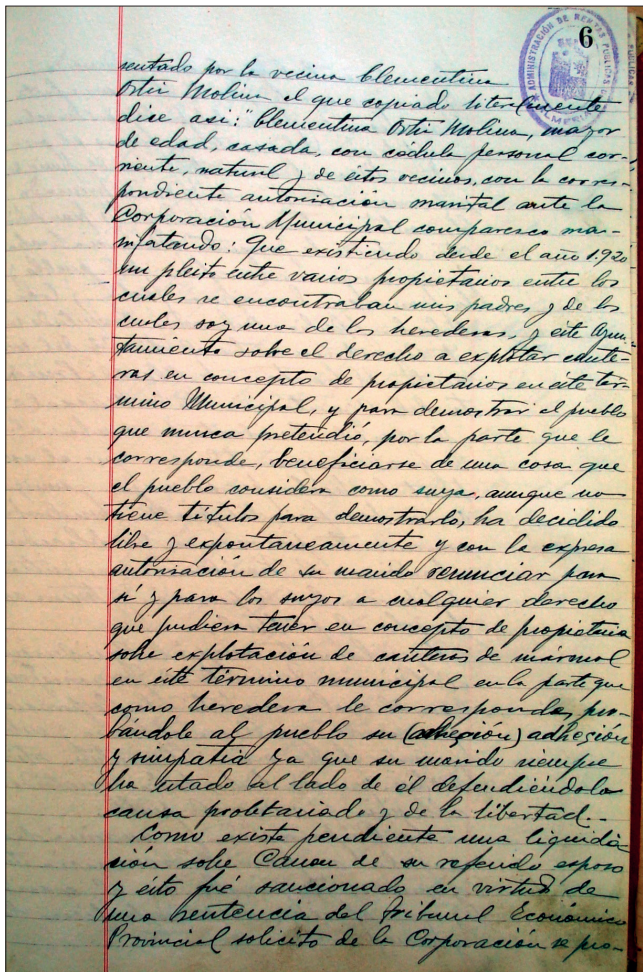 6
ADMINISTRACIÓN DE RENTAS PÚBLICAS
ALMERIA
sentado por la vecina Clementina
Ortiz Molina el que copiado literalmente
dise asi: "Clementina Ortiz Molina, mayor
de edad, casada, con cédula personal cor-
riente, natural y de éstos vecinos, con la corres-
pondiente autorisación marital ante la
Corporación Municipal comparesco ma-
nifestando: Que existiendo desde el año 1.920
un pleito entre varios propietarios entre los
cuales se encontraban mis padres y de los
cuales soy una de los herederas, y éste Ayun-
tamiento sobre el derecho a explotar cante-
ras en concepto de propietarios en éste tér-
mino Municipal, y para demostrar al pueblo
que nunca pretendió, por la parte que le
corresponde, beneficiarse de una cosa que
el pueblo considera como suya, aunque no
tiene títulos para demostrarlo, ha decidido
libre y expontaneamente y con la expresa
autorisación de su marido renunciar para
sí y para los suyos a cualquier derecho
que pudiera tener en concepto de propietaria
sobre explotación de canteras de mármol
en éste término municipal en la parte que
como heredera le corresponda, pro-
bándole al pueblo su (adheción) adheción
y simpatía ya que su marido siempre
ha estado al lado de él defendiéndo la
causa proletariado y de la libertad.-
Como existe pendiente una liquida-
sión sobre Canon de su referido esposo
y éito fué sancionado en virtud de
una sentencia del Tribunal Económico
Provincial solicito de la Corporación se pro-